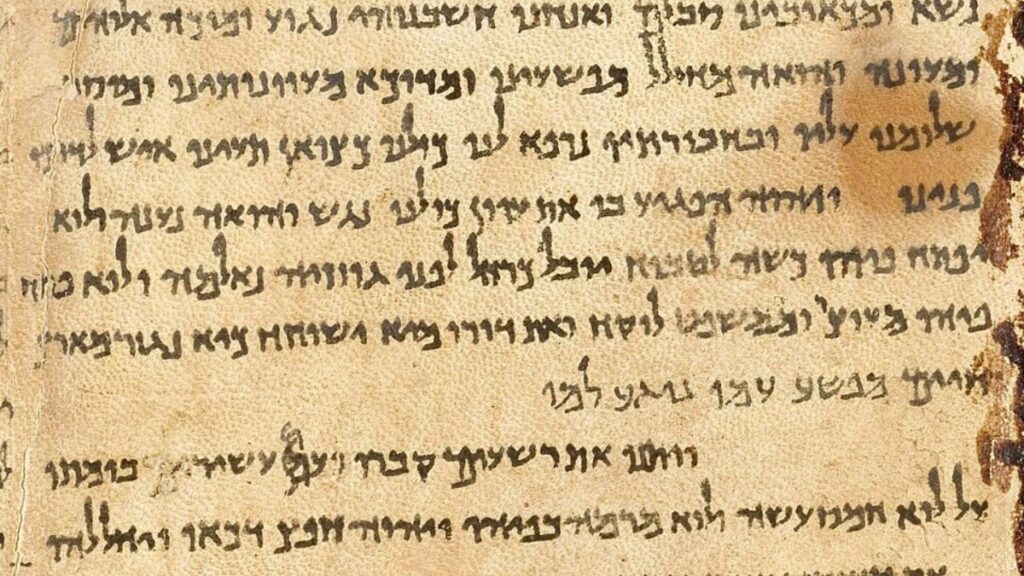 נשא ומכאובינו סבלם ואנחנו חשבנוהו נגוע ומוכה אלוהים
ומעונה והואה מחולל מפשעינו ומדוכא מעוונותינו ומוסר
שלומנו עליו ובחבורתיו נרפא לנו כולנו כצואן תעינו איש לדרכו
פנינו ויהוה הפגיע בו את עוון כולנו נגש והואה נענה ולוא
יפתח פיהו כשה לטבוח יובל כרחל לפני גוזזיה נאלמה ולוא פתח
פיהו מעוצר וממשפט לוקח ואת דורו מיא ישוחח כיא נגזר מארץ
חיים מפשע עמו נוגע למו
ויתנו את רשעים קברו ועם עשירים בומתו
על לוא חמס עשה ולוא מרמה בפיהו ויהוה חפץ דכאו ויחללהו